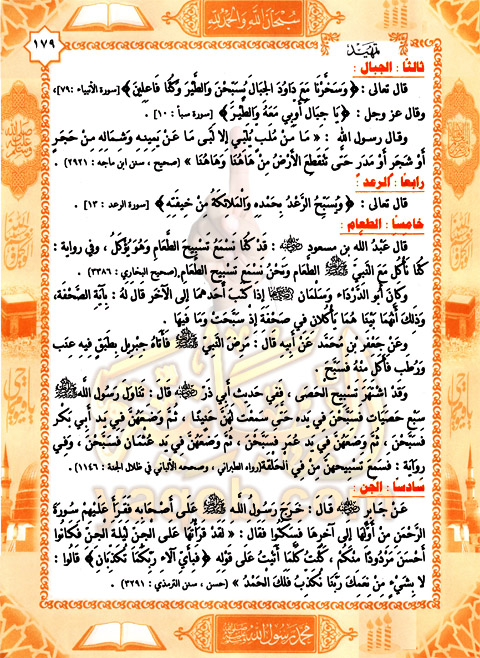 سبحان الله والحمد لله
١٧٩
تمهيد
ثالثا : الجبال :
قال تعالى : ﴿ وَسَخَّرْنَا مَعَ دَاوُدَ الْجِبَالَ يُسَبِّحْنَ وَالطَّيْرَ وَكُنَّا فَاعِلِينَ﴾ [سورة الأنبياء :٧٩]،
وقال عز وجل : ﴿ يَا جِبَالُ أَوِّبِي مَعَهُ وَالطَّيْرَ ﴾ [سورة سبأ : ١٠] .
وقال رسول الله : « مَا مِنْ مُلَبٍّ يُلَبِّي إِلَّا لَبَّى مَا عَنْ يَمِينِهِ وَشِمَالِهِ مِنْ حَجَرٍ
أَوْ شَجَرٍ أَوْ مَدَرٍ حَتَّى تَنْقَطِعَ الْأَرْضُ مِنْ هَاهُنَا وَهَاهُنَا » (صحيح ، سنن ابن ماجه : ٢٩٢١)
رابعا : الرعد :
قال تعالى : ﴿ وَيُسَبِّحُ الرَّعْدُ بِحَمْدِهِ وَالْمَلَائِكَةُ مِنْ خِيفَتِهِ ﴾ [سورة الرعد : ١٣] .
خامسا : الطعام :
قال عَبْدُ اللهِ بن مسعود ﷺ : قَدْ كُنَّا نَسْمَعُ تَسْبِيحَ الطَّعَامِ وَهُوَ يُؤْكَلُ ، وفي رواية :
كُنَّا نَأْكُلُ مَعَ النَّبِيِّ ﷺ الطَّعَامَ وَنَحْنُ نَسْمَعُ تَسْبِيحَ الطَّعَامِ.(صحيح البخاري : ٣٣٨٦)
وكَانَ أَبُو الدَّرْدَاءِ وَسَلْمَان إِذَا كَتَبَ أَحَدُهُمَا إِلَى الآخَرِ قَالَ لَهُ : بِآيَةِ الصَّحْفَةِ،
وَذَلِكَ أَنَّهُمَا بَيْنَا هُمَا يَأْكُلَانِ فِي صَحْفَةٍ إِذْ سَبَّحَتْ وَمَا فِيهَا .
وعَنْ جَعْفَر بْن مُحَمَّد عَنْ أَبِيهِ قال : مَرِضَ النَّبِيُّ ﷺ فَأَتَاهُ جِبْرِيلُ بِطَبَقٍ فِيهِ عِنَب
وَرُطَب فَأَكَلَ مِنْهُ فَسَبَّحَ .
وَقَدْ اشْتَهَرَ تَسْبِيح الْحَصَى ، فَفِي حَدِيث أَبِي ذَر قَالَ : تَنَاوَلَ رَسُول الله ﷺ
سَبْع حَصَيَات فَسَبَّحْنَ فِي يَده حَتَّى سَمِعْت لَهُنَّ حَنِينًا ، ثُمَّ وَضَعَهُنَّ فِي يَد أَبِي بَكْر
فَسَبَّحْنَ ، ثُمَّ وَضَعَهُنَّ فِي يَد عُمَر فَسَبَّحْنَ ، ثُمَّ وَضَعَهُنَّ فِي يَد عُثْمَان فَسَبَّحْنَ ، وَفِي
رِوَايَة : فَسَمِعَ تَسْبِيحهنَّ مَنْ فِي الْحَلْقَة(رواه الطبراني ، وصححه الألباني في ظلال الجنة : ١١٤٦) .
سادسا : الجن :
عَنْ جَابِرٍ قَالَ : خَرَجَ رَسُولُ اللهِ ﷺ عَلَى أَصْحَابِهِ فَقَرَأَ عَلَيْهِمْ سُورَةَ
الرَّحْمَنِ مِنْ أَوَّلِهَا إِلَى آخِرِهَا فَسَكَتُوا فَقَالَ : « لَقَدْ قَرَأْتُهَا عَلَى الْجِنِّ لَيْلَةَ الْجِنِّ فَكَانُوا
أَحْسَنَ مَرْدُودًا مِنْكُمْ ، كُنْتُ كُلَّمَا أَتَيْتُ عَلَى قَوْلِهِ ﴿فَبِأَيِّ آلَاءِ رَبِّكُمَا تُكَذِّبَانِ﴾ قَالُوا :
لَا بِشَيْءٍ مِنْ نِعَمِكَ رَبَّنَا نُكَذِّبُ فَلَكَ الْحَمْدُ » (حسن ، سنن الترمذي : ٣٢٩١)
محمد رسول الله
yaqob.com